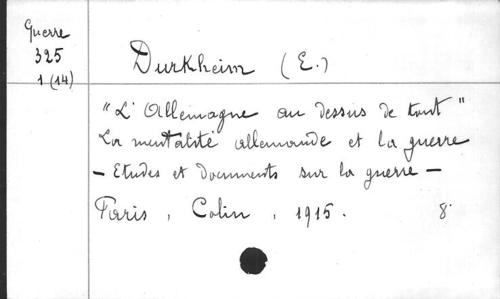 Guerre
325
1 (14)
Durkheim (E.)
"L'Allemagne au dessus de tout"
La mentalité allemande et la guerre
- Etudes et documents sur la guerre -
Paris, Colin, 1915. 8°